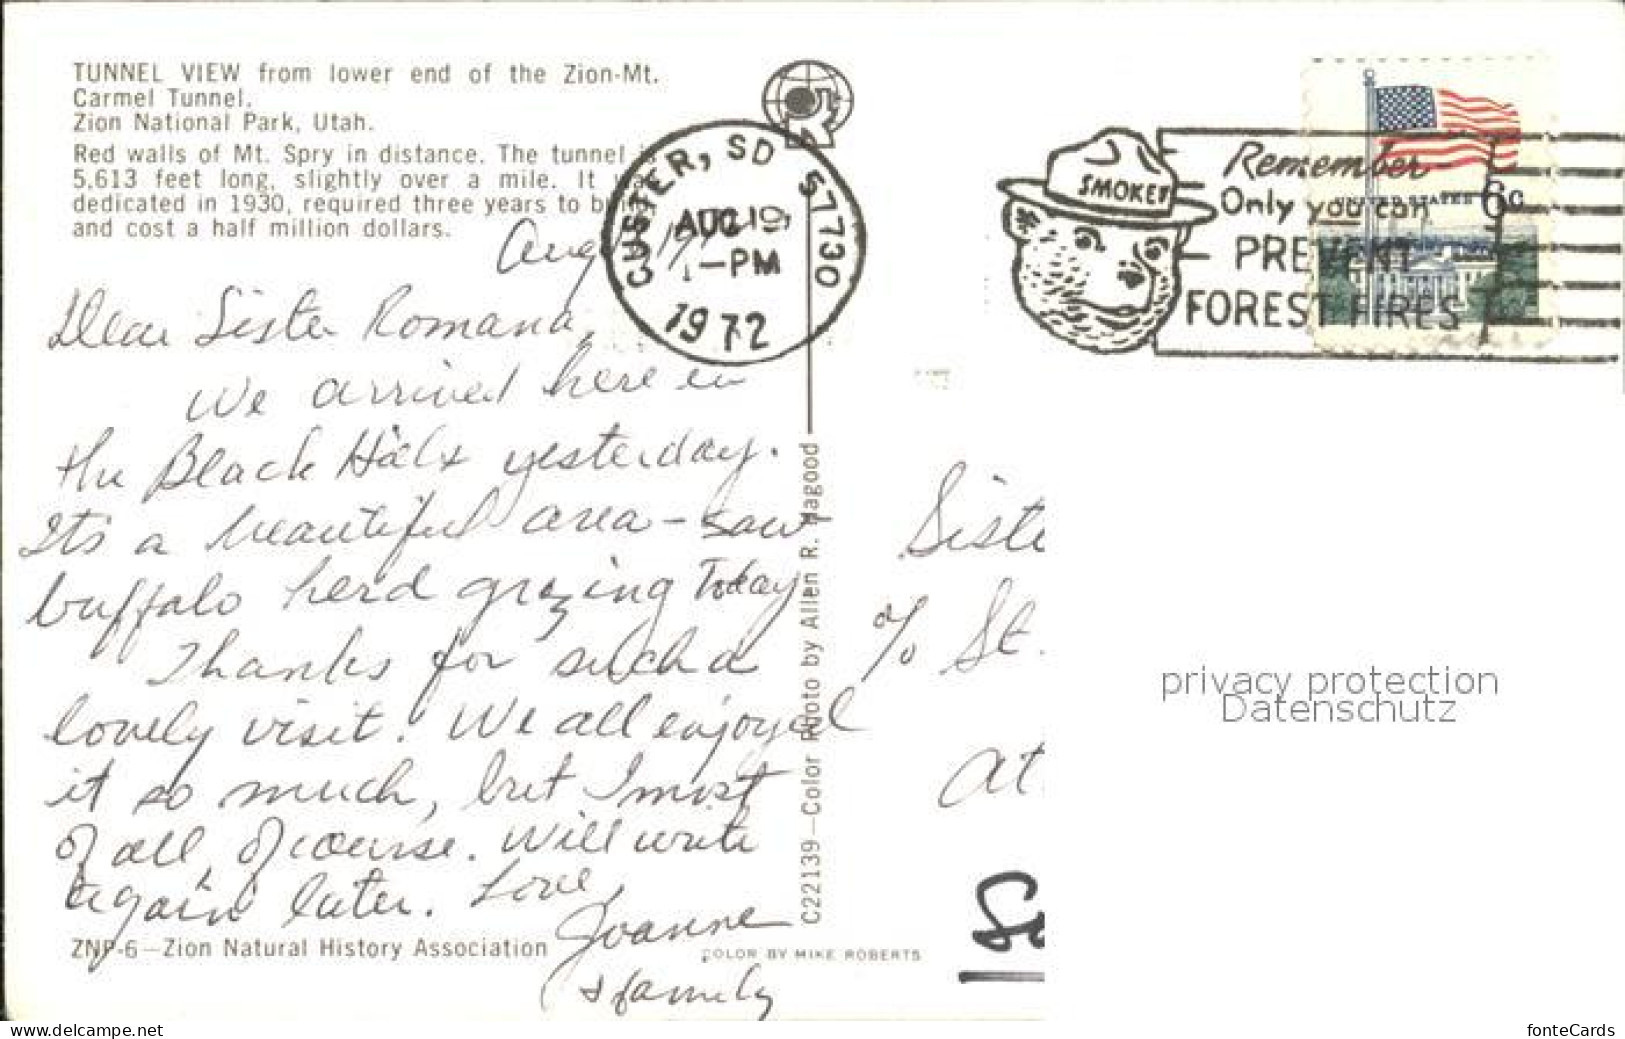 TUNNEL VIEW from lower end of the Zion-Mt.
Carmel Tunnel.
Zion National Park, Utah.
Red walls of Mt. Spry in distance. The tunnel is
5,613 feet long, slightly over a mile. It was
dedicated in 1930, required three years to build
and cost a half million dollars.
CUSTER, SD 57730
AUG 19
PM
1972
SMOKEY
Remember
Only you can
PREVENT
FOREST FIRES
UNITED STATES 6c
Aug 19
Dear Sister Romana,
We arrived here in
the Black Hills yesterday.
It's a beautiful area - saw
buffalo herd grazing today
Thanks for such a
lovely visit. We all enjoyed
it so much, but I most
of all, of course. Will write
again later. Love,
Joanne
& family
ZNP-6—Zion Natural History Association
COLOR BY MIKE ROBERTS
C22139—Color Photo by Allen R. Hagood
Siste
c/o St.
At
privacy protection
Datenschutz
www.delcampe.net
fonteCards